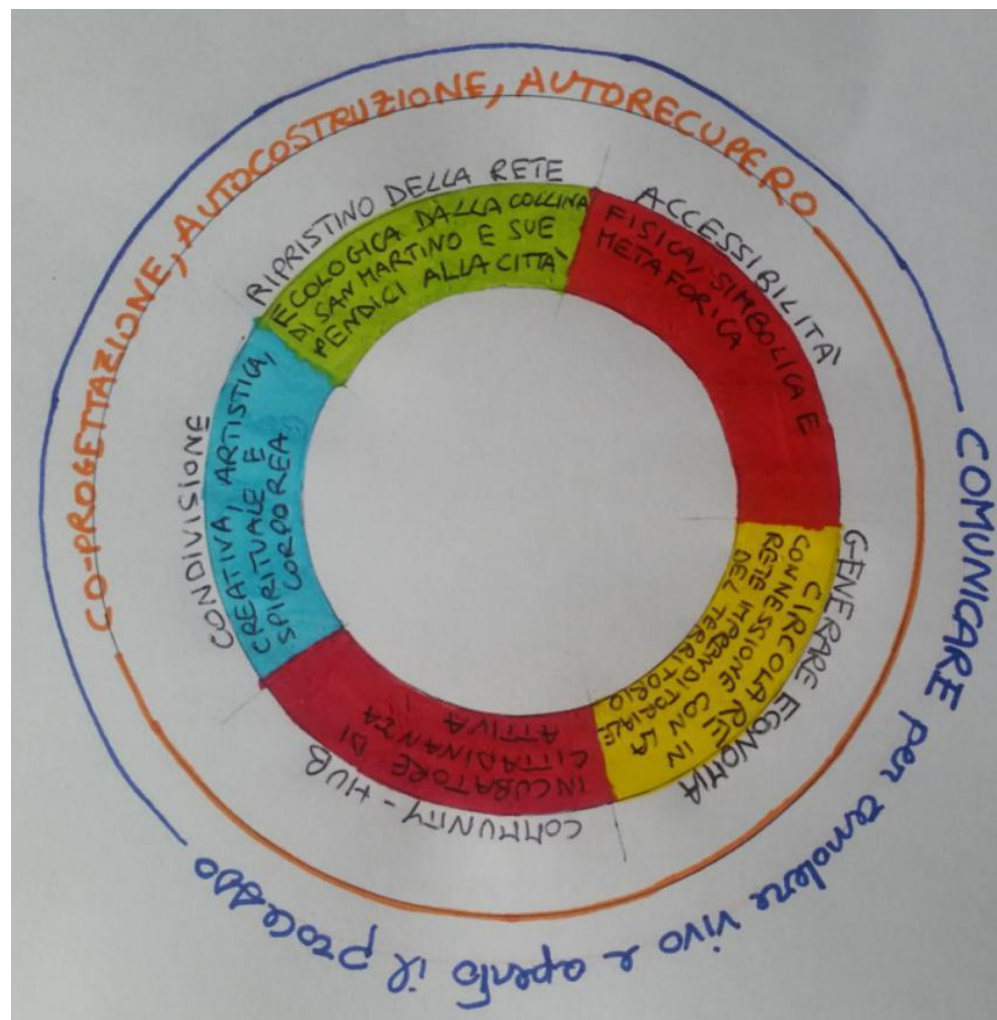 CO-PROGETTAZIONE, AUTOCOSTRUZIONE, AUTORECUPERO
COMUNICARE per rendere vivo e aperto il processo
RIPRISTINO DELLA RETE
ECOLOGICA DALLA COLLINA
DI SAN MARTINO E SUE
PENDICI ALLA CITTÀ
ACCESSIBILITÀ
FISICA, SIMBOLICA E
METAFORICA
GENERARE ECONOMIA
CIRCOLARE IN
CONNESSIONE CON LA
RETE IMPRENDITORIALE
DEL TERRITORIO
COMMUNITY-HUB
INCUBATORE DI
CITTADINANZA
ATTIVA
CONDIVISIONE
CREATIVA, ARTISTICA,
SPIRITUALE E
CORPOREA